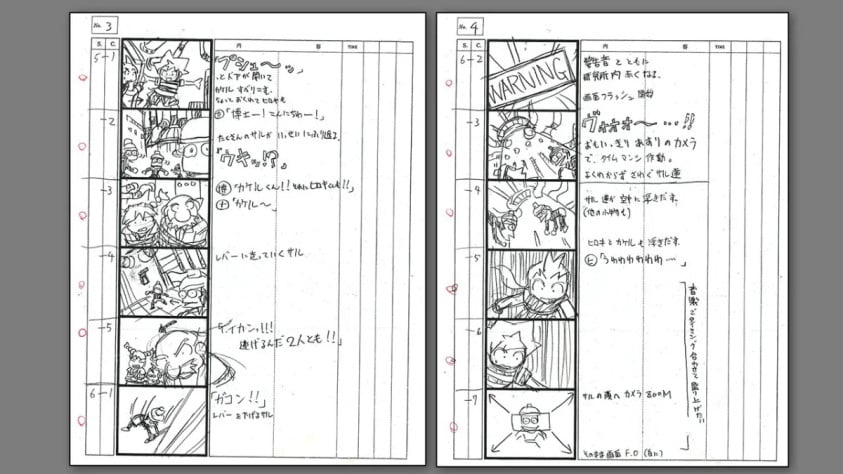 No. 3
S. C. 内 容 TIME
5-1
「プシュ〜ッ」
とドアが開いて
カケルすべりこむ。
ちょっとおくれてヒロキも
「博士ー!こんにちわー!」
-2
たくさんのサルがいっせいにふり返る。
「ウキッ!?」
-3
博「カケルくん!!それにヒロキくんも!!」
ナ「カケル〜」
-4
レバーに走っていくサル
-5
「イカン!!!
逃げるんだ2人とも!!」
6-1
「ガコン!!」
レバーを下げるサル
No. 4
S. C. 内 容 TIME
6-2
WARNING
警告音とともに
研究所内赤くなる。
画面フラッシュ開始
-3
ヴォォォ〜…!!
おもいっきりあおりのカメラ
で、タイムマシン作動。
よくわからずさわぐサル達
-4
サル達が空中に浮きだす。
(他の小物も)
ヒロキとカケルも浮きだす
ヒ「うわわわわわ…」
-5
音楽とタイミング合わせて盛り上げたい!!
-6
-7
サルの顔へカメラZOOM
そのまま画面F.O(白に)